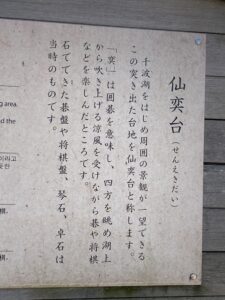 仙奕台（せんえきだい）
千波湖をはじめ周囲の景観が一望できる
この突き出た台地を仙奕台と称します。
「奕」は囲碁を意味し、四方を眺め湖上
から吹き上げる涼風を受けながら碁や将棋
などを楽しんだところです。
石でできた碁盤や将棋盤、琴石、卓石は
当時のものです。
ng area.
nd the